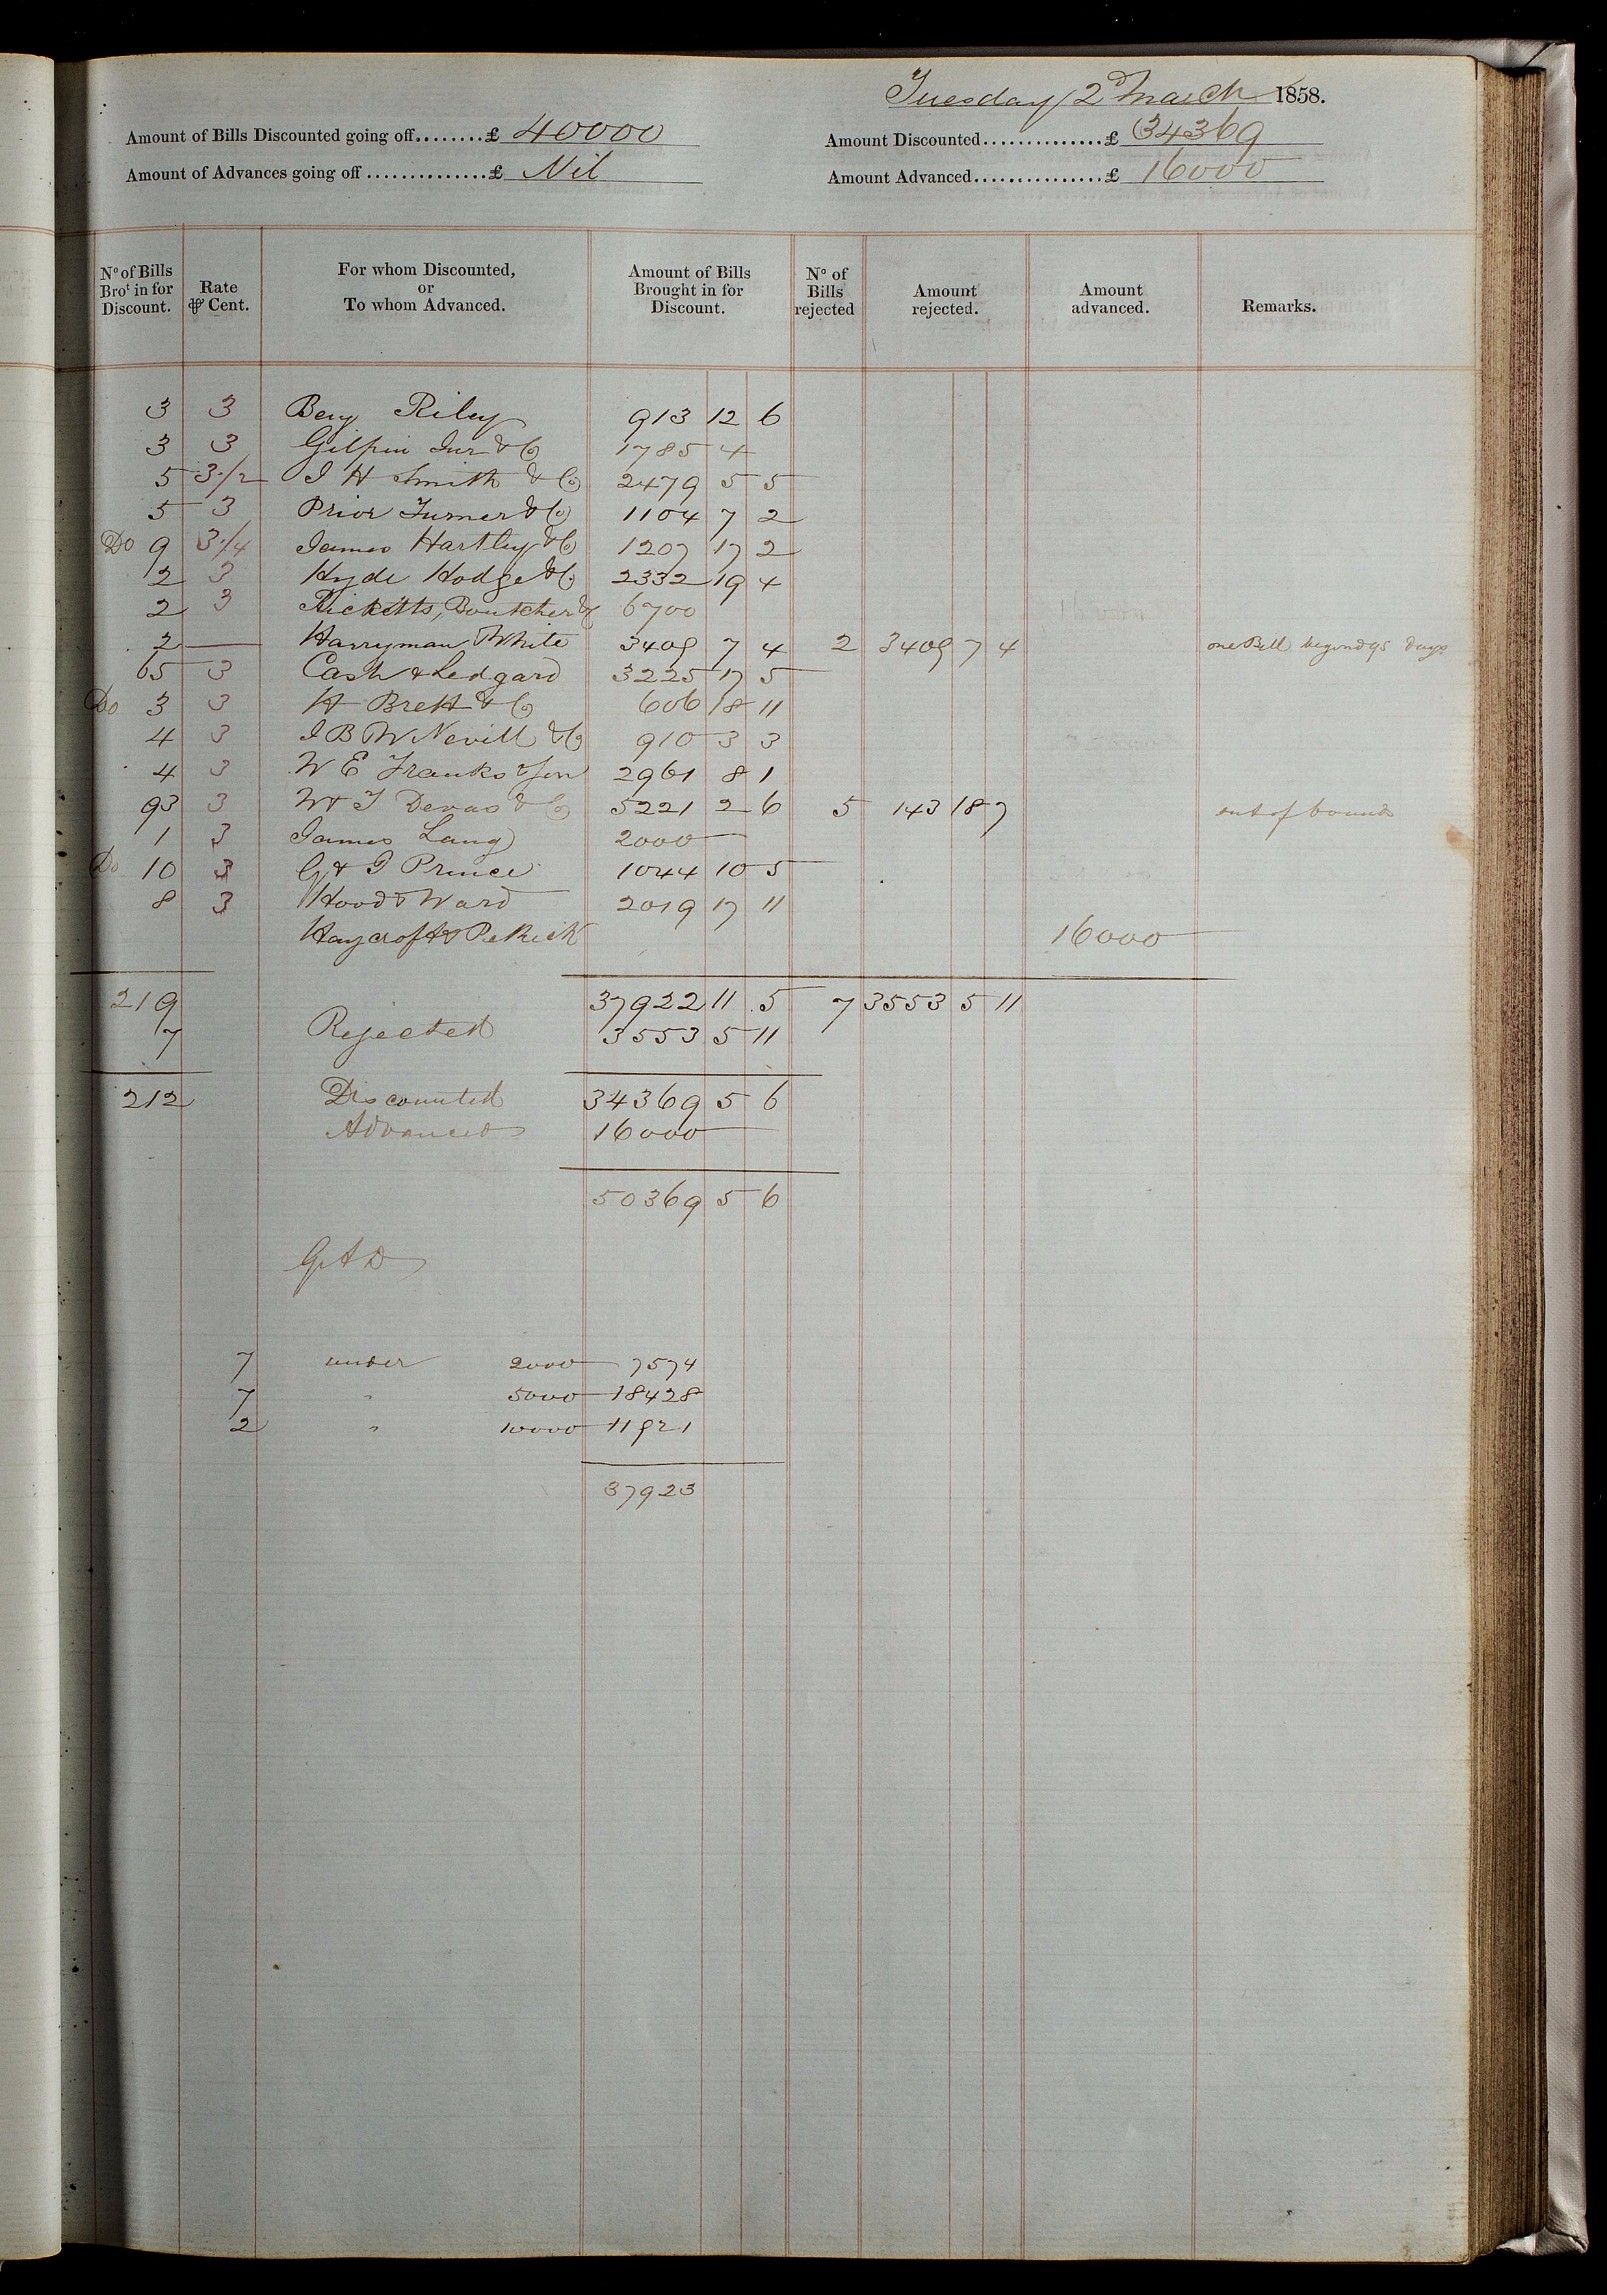 Tuesday 2d March 1858.
Amount of Bills Discounted going off........£ 40000 Amount Discounted..............£ 34369
Amount of Advances going off ..............£ Nil Amount Advanced...............£ 16000
No of Bills Brot in for Discount. Rate ⅌ Cent. For whom Discounted, or To whom Advanced. Amount of Bills Brought in for Discount. No of Bills rejected Amount rejected. Amount advanced. Remarks.
3 3 Benj Riley 913 12 6
3 3 Gilpin Junr & Co 1785 4
5 3 1/2 J H Smith & Co 2479 5 5
5 3 Prior Turner & Co 1104 7 2
Do 9 3 1/4 James Hartley & Co 1207 17 2
2 3 Hyde Hodge & Co 2332 19 4
2 3 Ricketts, Boutcher & Co 6700
2 — Harryman White 3409 7 4 2 3409 7 4 one Bill beyond 95 days
65 3 Cash & Ledgard 3225 17 5
Do 3 3 H Brett & Co 606 18 11
4 3 J B & W Nevill & Co 910 3 3
4 3 W E Franks & Son 2961 8 1
93 3 W & T Devas & Co 5221 2 6 5 143 18 7 out of bounds
1 3 James Lang 2000
Do 10 3 G & J Prince 1044 10 5
8 3 Hood & Ward 2019 17 11
Haycroft & Pethick 16000
219 37922 11 5 7 3553 5 11
7 Rejected 3553 5 11
212 Discounted 34369 5 6
Advanced 16000
50369 5 6
7 under 2000 7574
7 " 5000 18428
2 " 10000 11921
37923